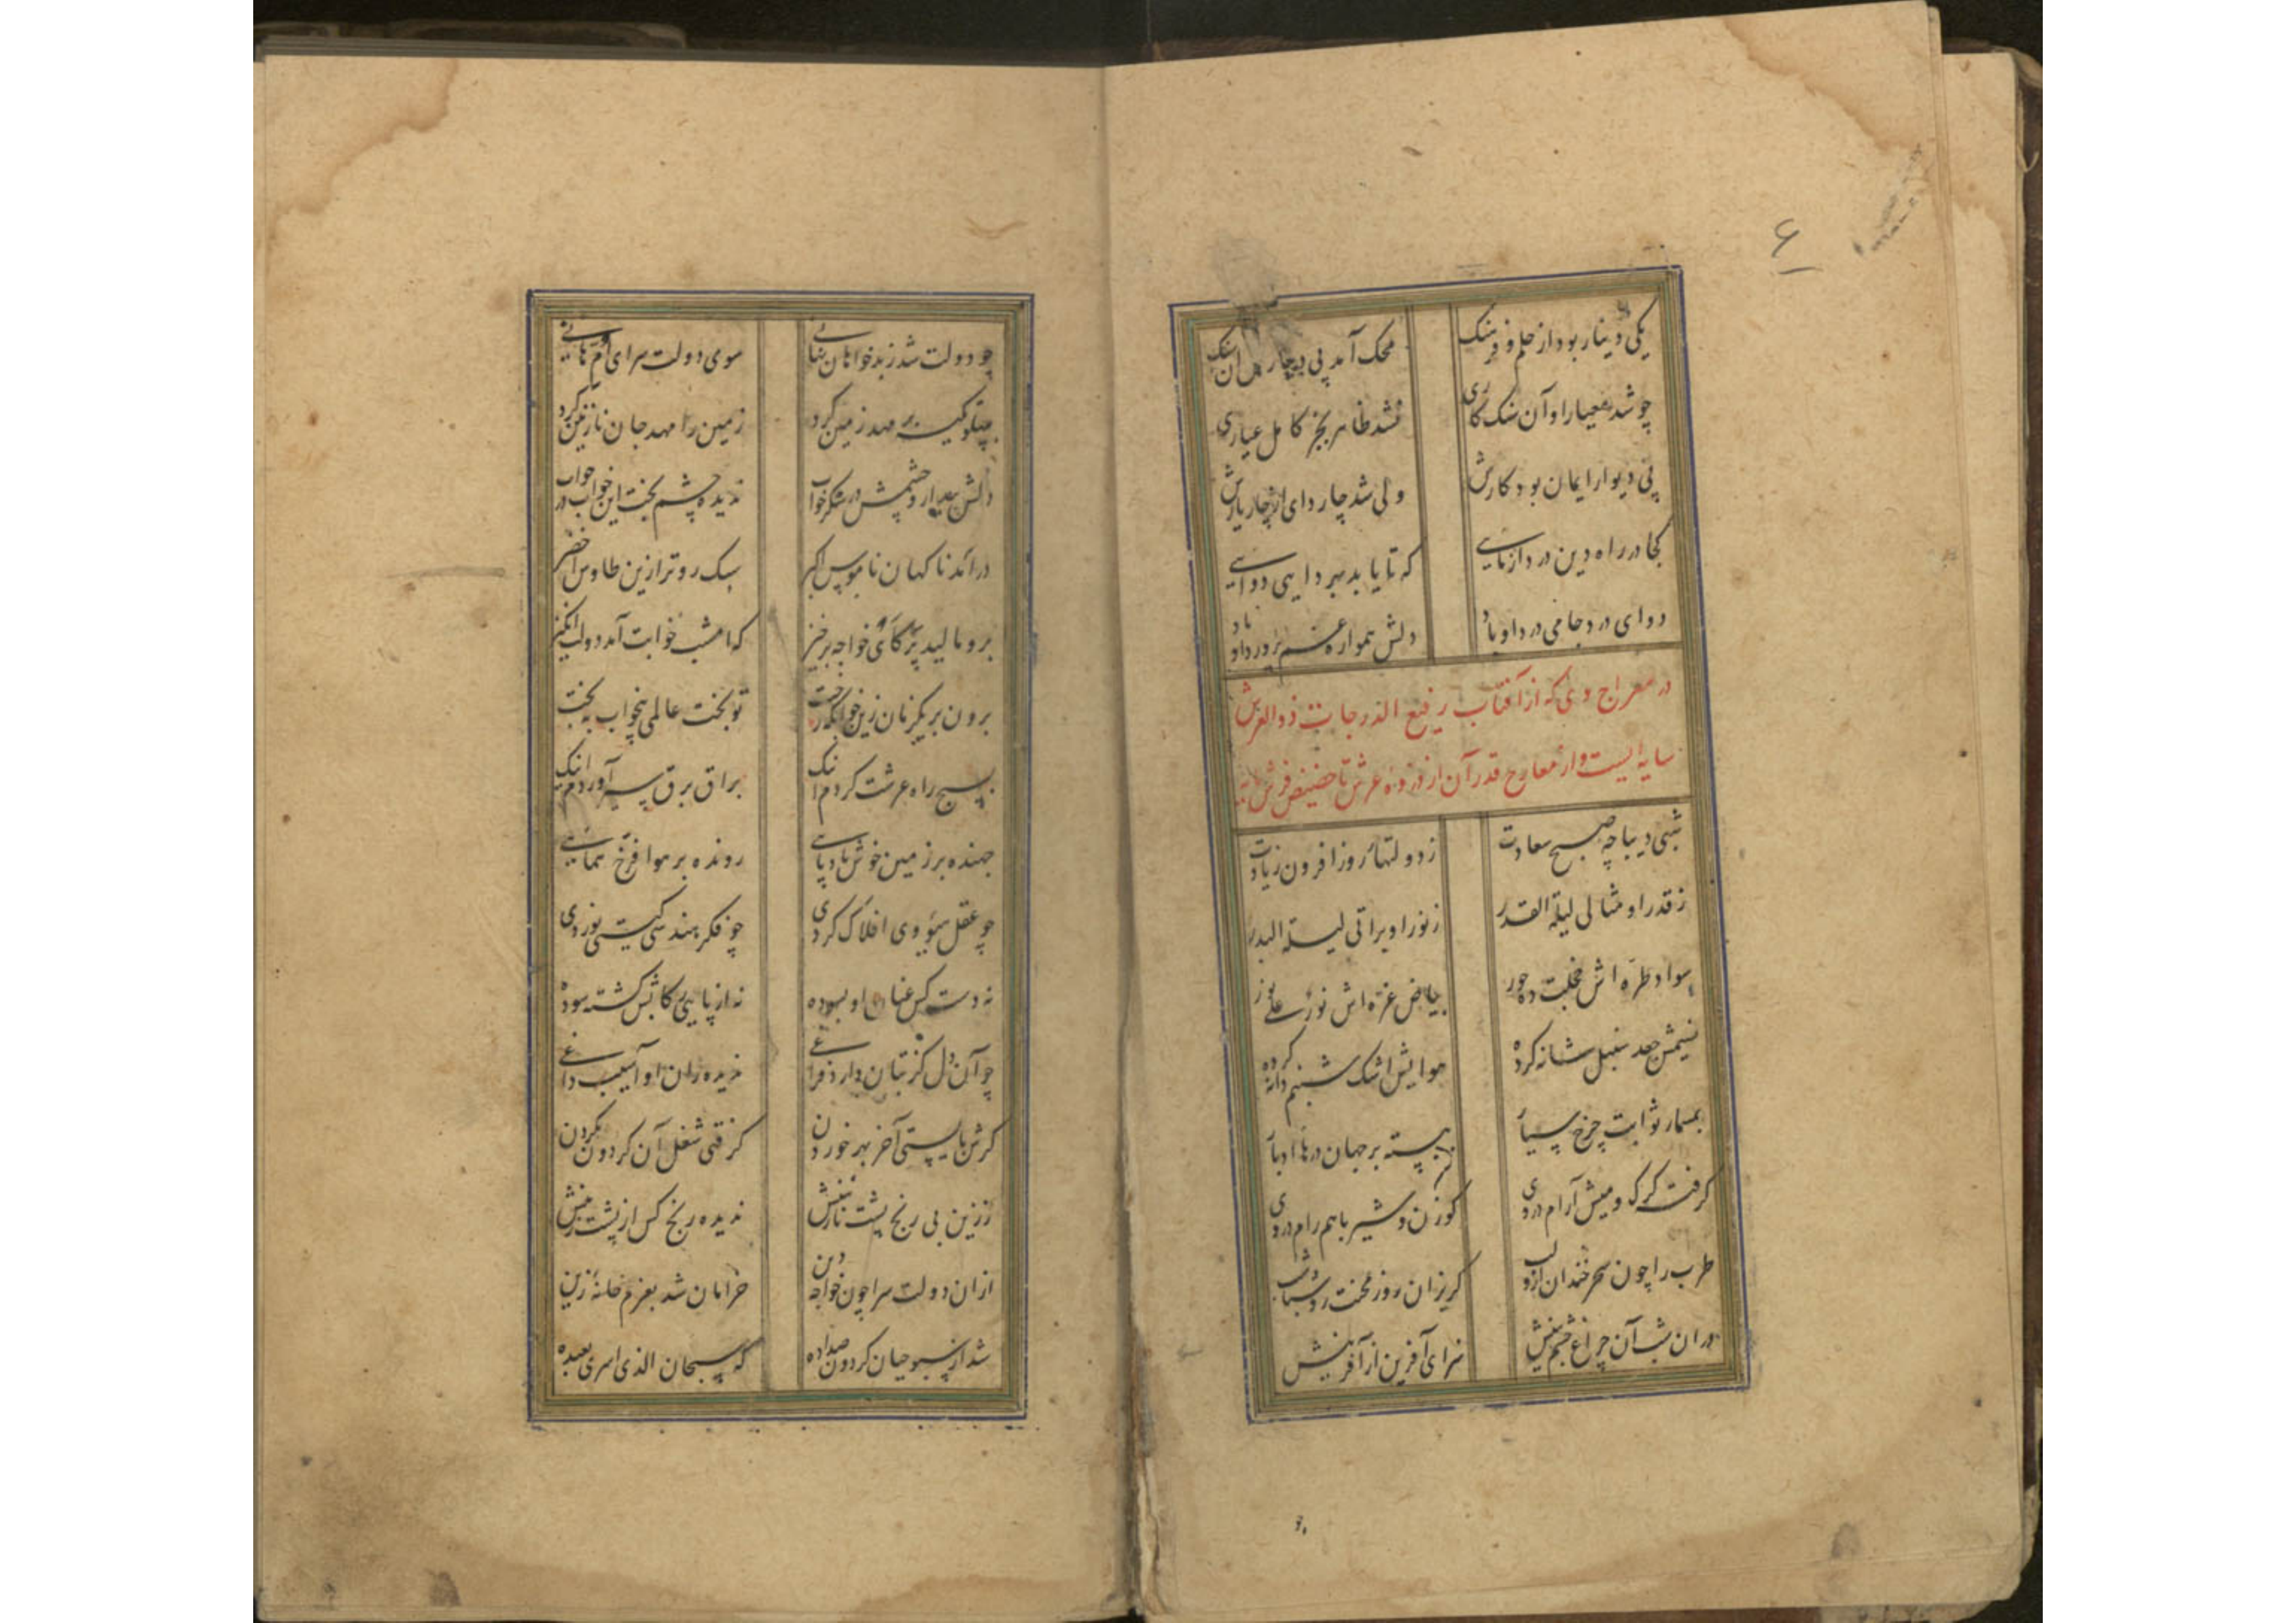 ۶
یکی دینار بود از حلم و فرهنک محک آمد پی دینارش آن سنک
چو شد معیار او آن سنک کاری نشد ظاهر بجز کامل عیاری
پی دیوار ایمان بود کارش ولی شد چار دای از چار یارش
کجا در راه دین درد آزمایی که تا یابد بهر دایی دوایی
دوای درد جامی درد او باد دلش همواره غم پرورد او باد
در معراج وی که از آفتاب رفیع الدرجات ذو العرش
سایه ایست و از معارج قدر آن از ذروه عرش تا حضیض فرش
شبی دیباچه صبح سعادت ز دولتهای روز افزون زیادت
ز قدر او مثالی لیلة القدر ز نور او براتی لیلة البدر
سواد طره اش خجلت ده حور بیاض غره اش نور علی نور
نسیمش جعد سنبل شانه کرده هوایش اشک شبنم دانه کرده
بمسمار ثوابت چرخ سیار ببسته بر جهان درهای ادبار
کرفته کرک و میش آرام در وی کوزن و شیر با هم رام در وی
طرب را چون سحر خندان ازو لب کریزان روز محنت زو شباشب
دران شب آن چراغ چشم بینش سزای آفرین از آفرینش
چو دولت شد ز بدخواهان نهانی سوی دولت سرای ام هانی
بپهلو تکیه بر مهد زمین کرد زمین را مهد جان نازنین کرد
دلش بیدار و چشمش در شکر خواب ندیده چشم بخت این خواب در خواب
درآمد ناکهان ناموس اکبر سبک رو تر ازین طاوس اخضر
برو مالید پر کای خواجه برخیز که امشب خوابت آمد دولت انکیز
برون بر یکزمان زین خوابکه رخت تو بخت عالمی بیخواب به بخت
بسیج راه عرشت کردم اینک براق برق سیر آوردم اینک
جهنده بر زمین خوش بادپایی رونده بر هوا فرخ همایی
چو عقل سوی افلاک کردی چو فکر هندسی کیتی نوردی
نه دست کس عنان او بسوده نه از پایی رکابش کشته سوده
چو آن دل کز بتان دارد فراغی ندیده ران او آسیب داغی
کرش بایستی آخر بهر خوردن کرفتی شغل آن کردون بکردن
ز زین بی رنج پشت نازنینش ندیده رنج کس از پشت زینش
ازان دولت سرا چون خواجه دین خرامان شد بعزم خانه زین
شد از سبوحیان کردون صدا ده که سبحان الذی اسری بعبده